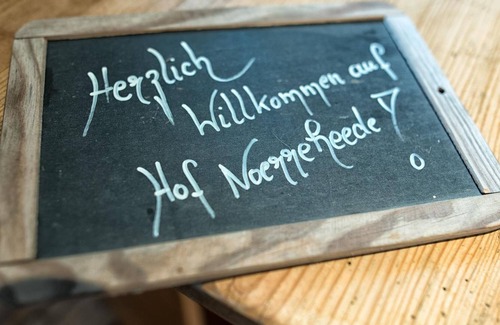 Herzlich
Willkommen auf
Hof Noerreheede!